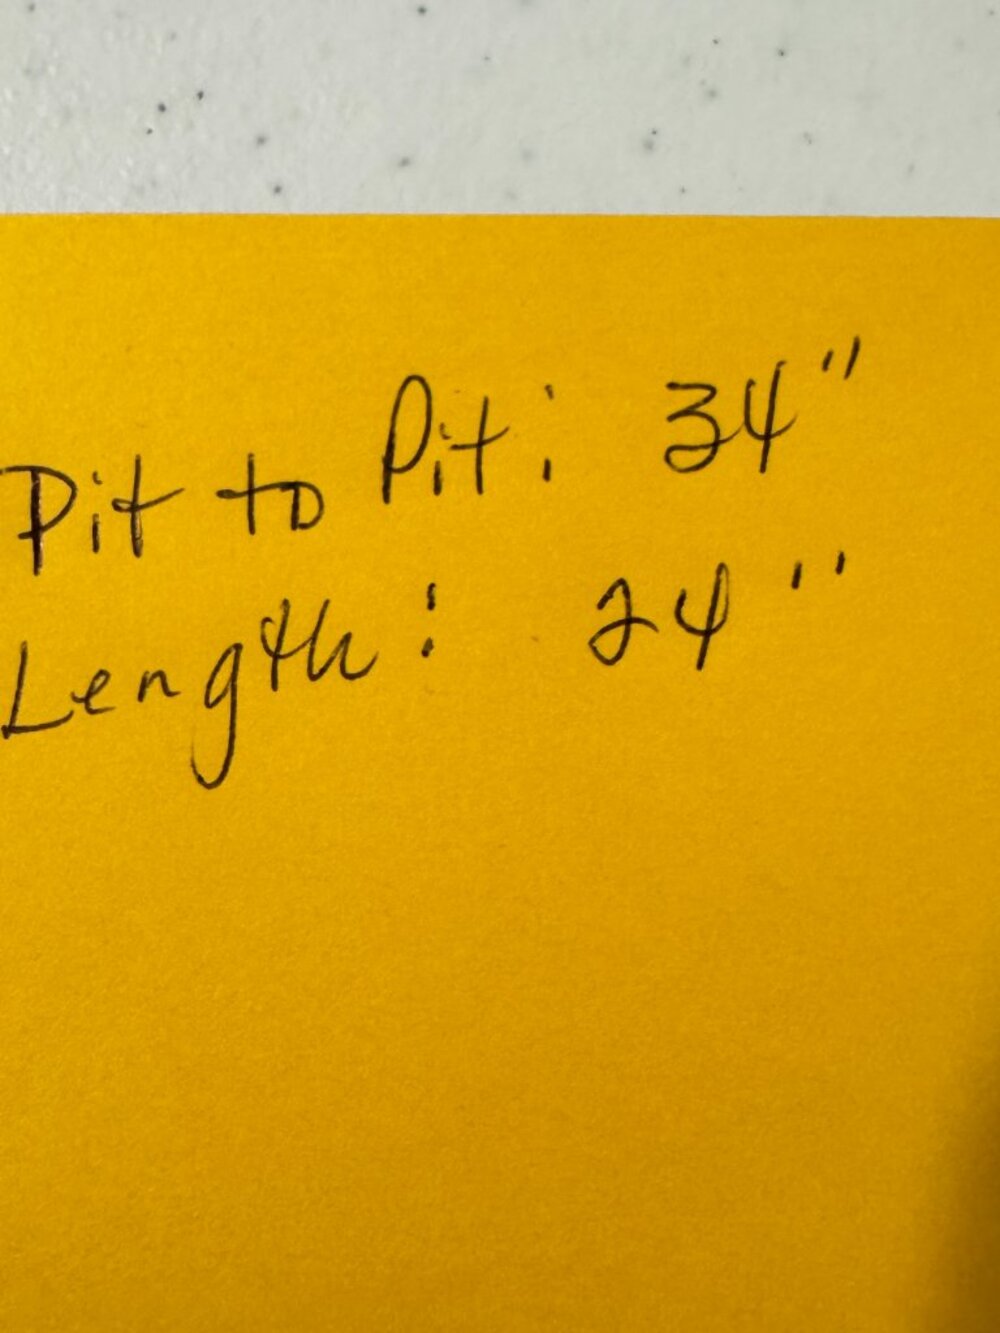 Pit to Pit: 34"
Length: 24"